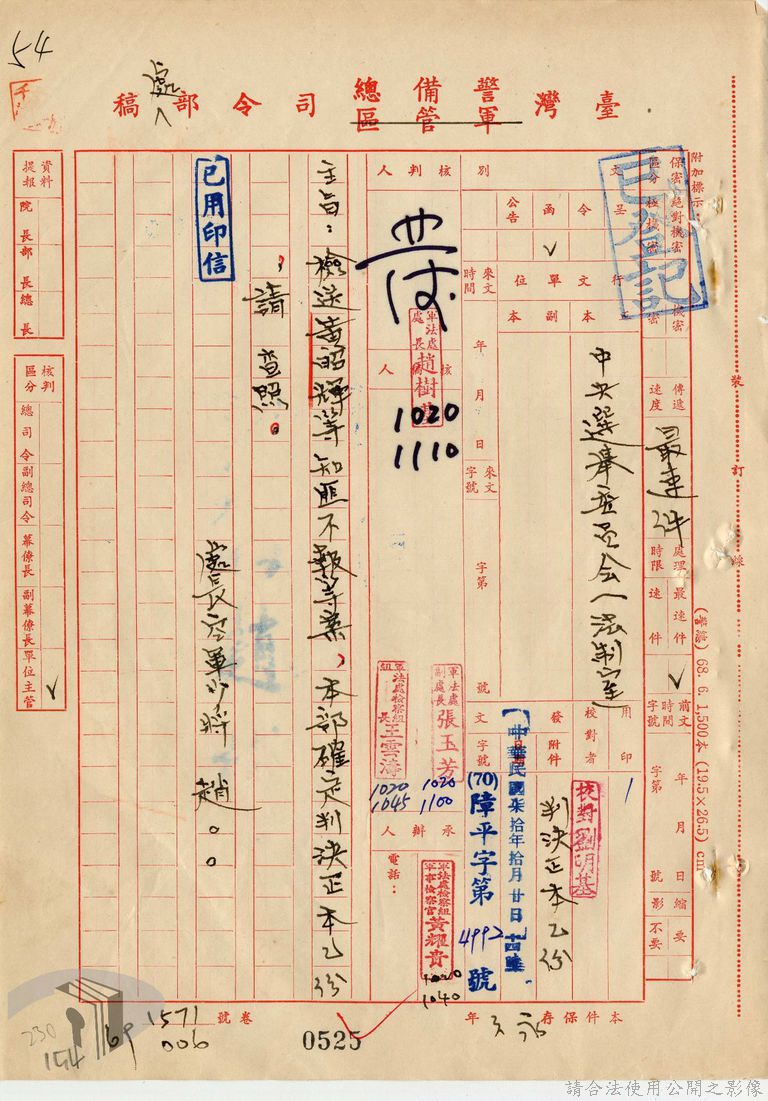 54
臺灣警備總司令部處稿
軍管區
附加標示
保密區分
絕對機密
極機密
機密
已登記
傳遞速度
最速件
處理時限
最速件
速件
前文時間字號
年月日
字第 號
縮影
要
不要
裝訂線
(普通) 68. 6. 1,500本 (19.5×26.5) cm
文別
呈
令
函
公告
行文單位
正本
副本
中央選舉委員會-法制室
用印
校對者
校對劉明基
發文
附件
判決正本乙份
字號
中華民國柒拾年拾月廿日
(70)障平字第4992號
來文時間
年月日
來文字號
字第 號
核判人
軍法處處長趙樹
1020
1110
核人
軍法處副處長張玉芳
1020
1100
軍法處檢察組組長王雲濤
1020
1045
承辦人
軍法處檢察組軍事檢察官黃耀貴
1020
1040
電話：
主旨：檢送黃昭輝等知匪不報等案，本部確定判決正本乙份
，請 查照。
處長空軍少將 趙。。
已用印信
資料提報
院長
部長
總長
核判區分
總司令
副總司令
幕僚長
副幕僚長
單位主管
本件保存 年
卷號
69
1571
006
0525
230
154
請合法使用公開之影像